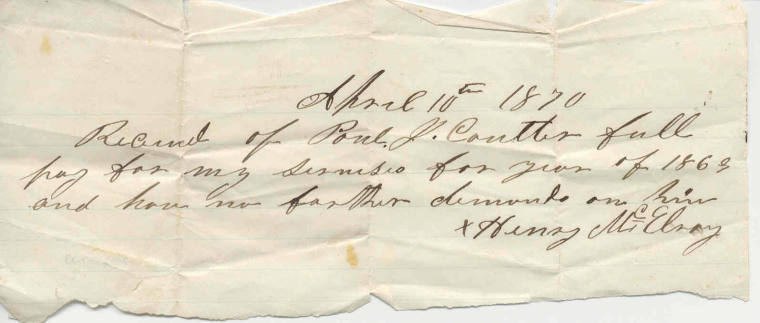 April 10th 1870
Recived of Paul. J. Coutter full
pay for my servises for year of 1869
and have no farther demands on him
x Henry McElroy